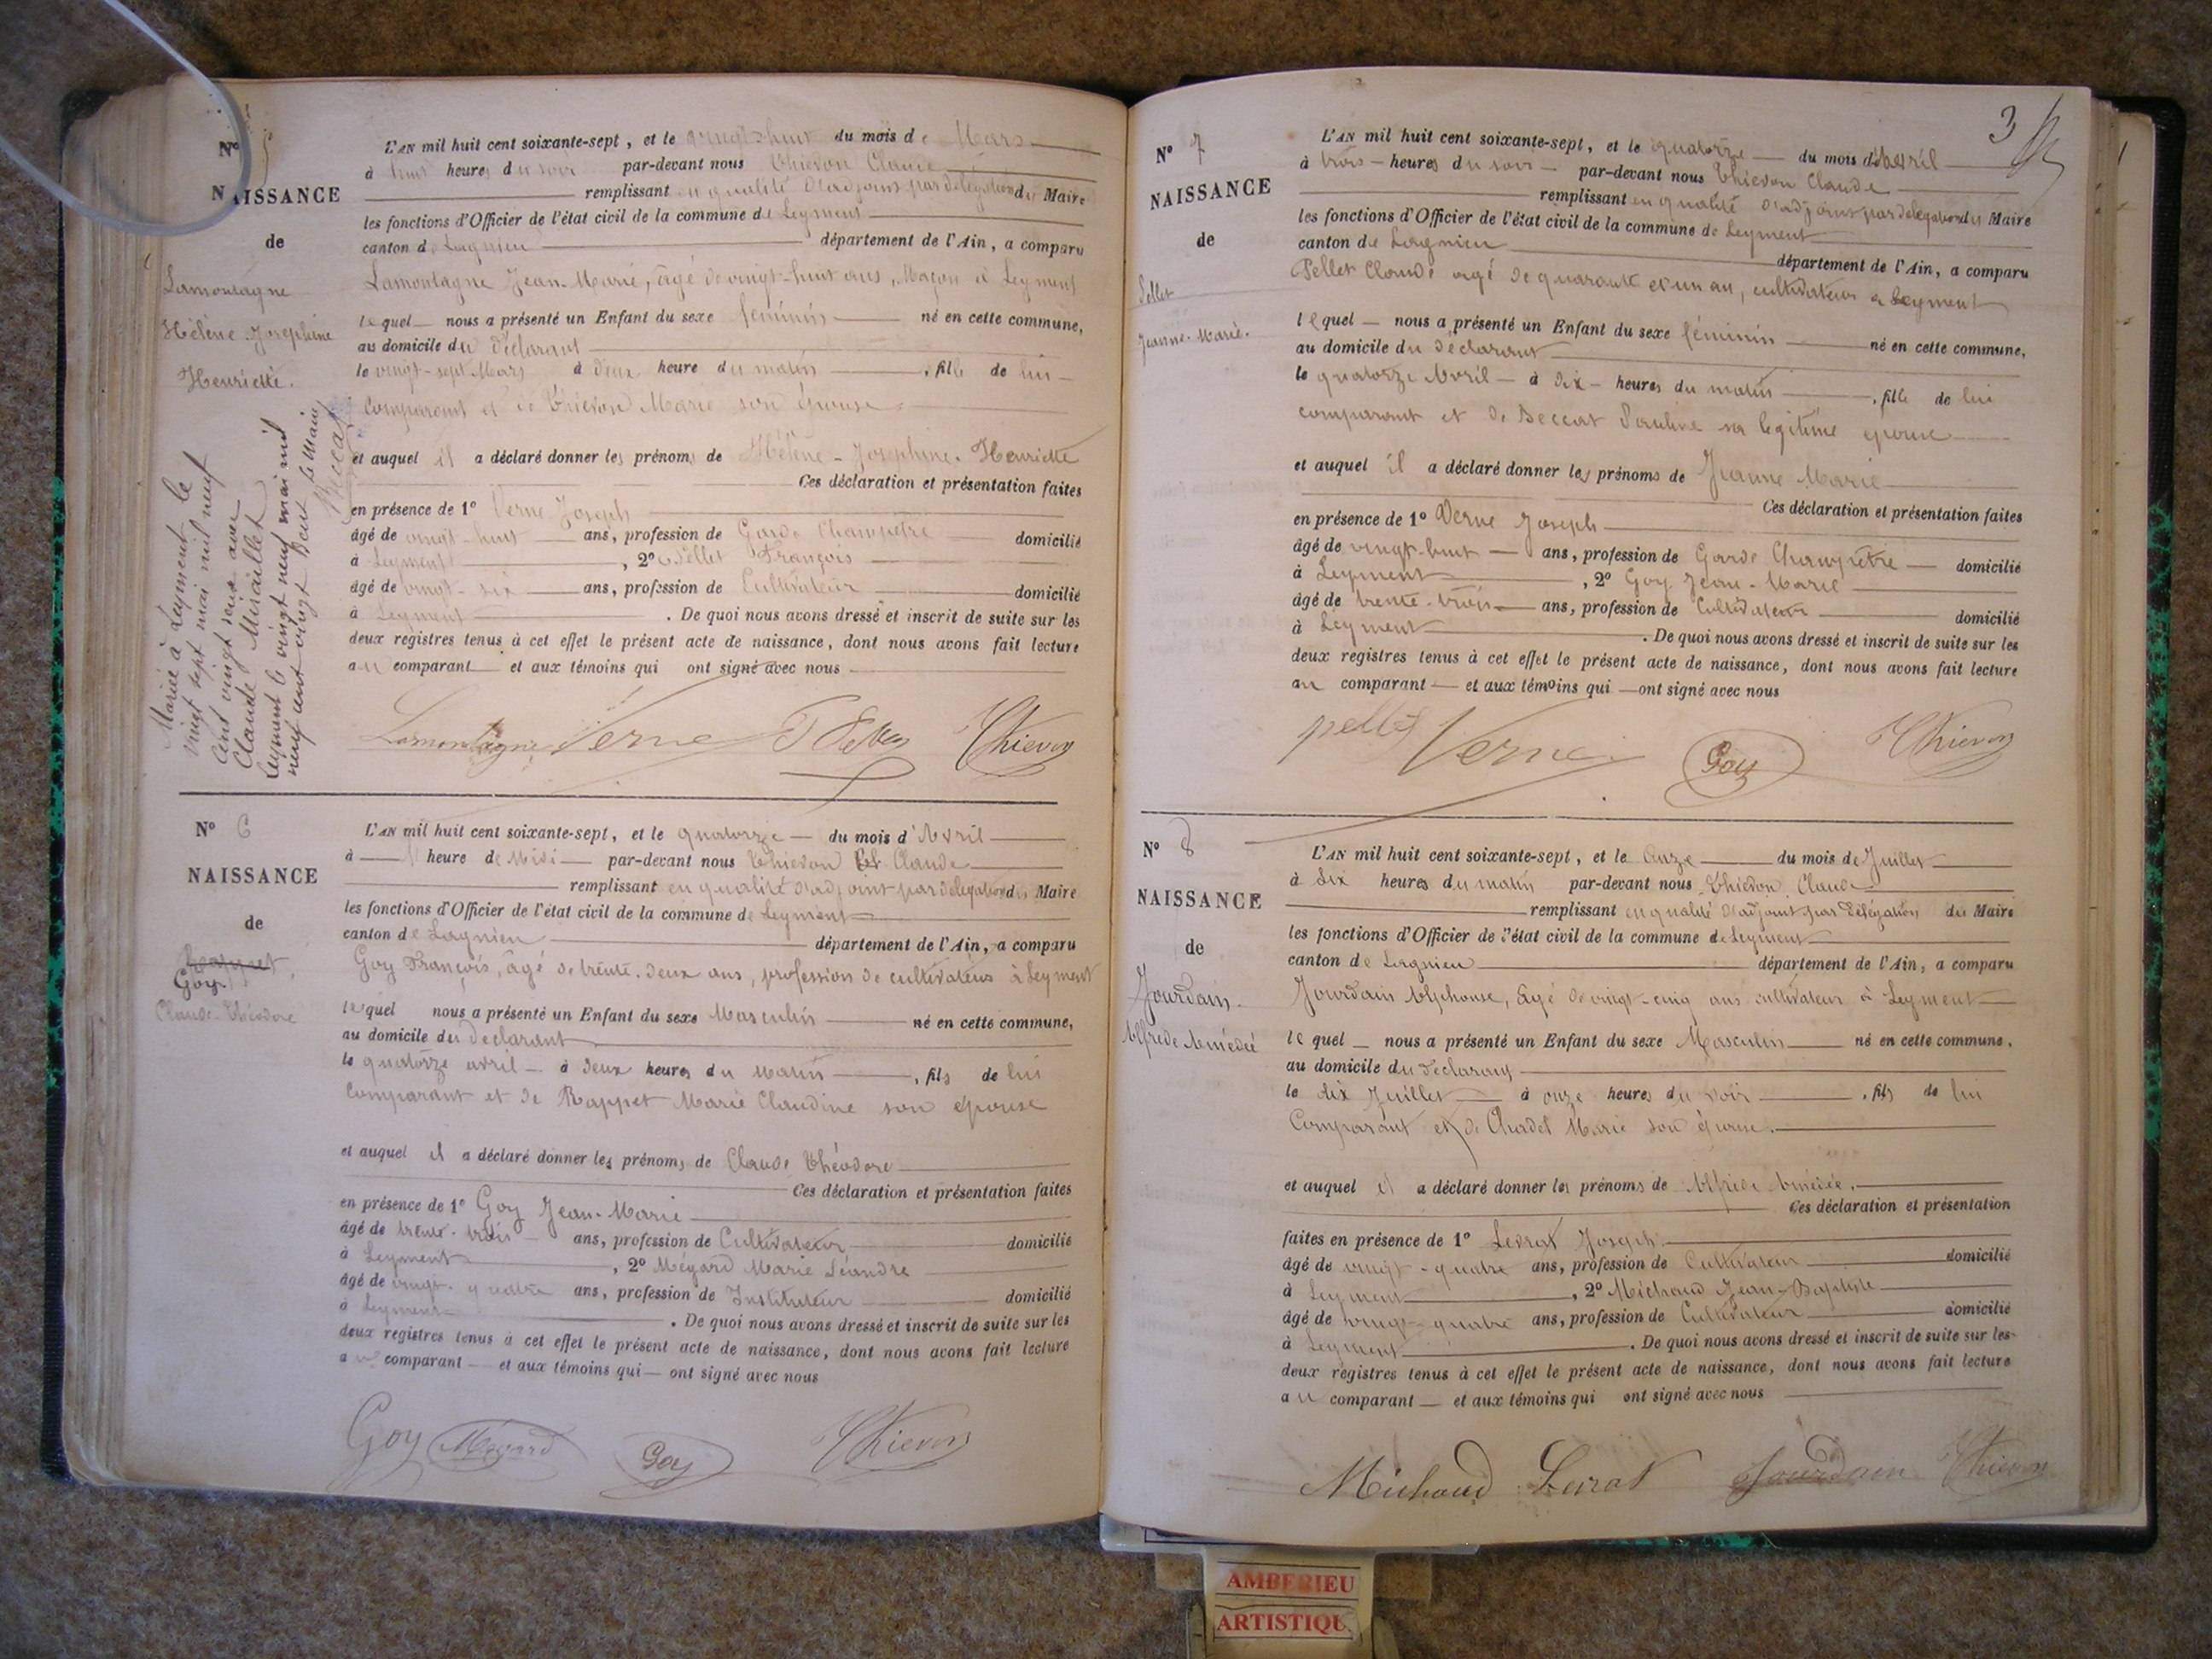 N° 5
NAISSANCE
de
Lamontagne
Hélène-Josephine
Henriette.
Mariée à Leyment le
vingt sept mai mil neuf
cent vingt avec
Claude
Leyment le vingt neuf mai mil
neuf cent vingt Le Maire
L'AN mil huit cent soixante-sept, et le vingt-huit du mois de Mars
à huit heures du soir par-devant nous Thievon Claude
remplissant en qualité d'adjoint par délégation du Maire
les fonctions d'Officier de l'état civil de la commune de Leyment
canton de Lagnieu département de l'Ain, a comparu
Lamontagne Jean-Marie, âgé de vingt-huit ans, Maçon à Leyment
lequel nous a présenté un Enfant du sexe féminin né en cette commune,
au domicile du déclarant
le vingt-sept Mars à deux heure du matin, fille de lui
comparant et de Thievon Marie son épouse.
et auquel il a déclaré donner les prénoms de Hélène-Josephine-Henriette
Ces déclaration et présentation faites
en présence de 1° Verne Joseph
âgé de vingt-huit ans, profession de Garde Champêtre domicilié
à Leyment, 2° Pellet François
âgé de vingt-six ans, profession de Cultivateur domicilié
à Leyment. De quoi nous avons dressé et inscrit de suite sur les
deux registres tenus à cet effet le présent acte de naissance, dont nous avons fait lecture
au comparant et aux témoins qui ont signé avec nous
Lamontagne Verne Thievon
N° 6
NAISSANCE
de
Rappet
Goy
Claude-Théodore
L'AN mil huit cent soixante-sept, et le quatorze du mois d'Avril
à heure de Midi par-devant nous Thievon Claude
remplissant en qualité d'adjoint par délégation du Maire
les fonctions d'Officier de l'état civil de la commune de Leyment
canton de Lagnieu département de l'Ain, a comparu
Goy François, âgé de trente-deux ans, profession de cultivateur à Leyment
lequel nous a présenté un Enfant du sexe Masculin né en cette commune,
au domicile du déclarant
le quatorze avril à deux heures du matin, fils de lui
comparant et de Rappet Marie Claudine son épouse
et auquel il a déclaré donner les prénoms de Claude Théodore
Ces déclaration et présentation faites
en présence de 1° Goy Jean-Marie
âgé de trente-trois ans, profession de Cultivateur domicilié
à Leyment, 2° Mégard Marie Léandre
âgé de vingt-quatre ans, profession de Instituteur domicilié
à Leyment. De quoi nous avons dressé et inscrit de suite sur les
deux registres tenus à cet effet le présent acte de naissance, dont nous avons fait lecture
au comparant et aux témoins qui ont signé avec nous
Goy Mégard Goy Thievon
3
N° 7
NAISSANCE
de
Pellet
Jeanne-Marie.
L'AN mil huit cent soixante-sept, et le quatorze du mois d'avril
à trois heures du soir par-devant nous Thievon Claude
remplissant en qualité d'adjoint par délégation du Maire
les fonctions d'Officier de l'état civil de la commune de Leyment
canton de Lagnieu département de l'Ain, a comparu
Pellet Claude âgé de quarante et un an, cultivateur à Leyment
lequel nous a présenté un Enfant du sexe féminin né en cette commune,
au domicile du déclarant
le quatorze Avril à dix heures du matin, fille de lui
comparant et de Beccat Pauline sa legitime epouse
et auquel il a déclaré donner les prénoms de Jeanne Marie
Ces déclaration et présentation faites
en présence de 1° Verne Joseph
âgé de vingt-huit ans, profession de Garde Champêtre domicilié
à Leyment, 2° Goy Jean-Marie
âgé de trente-trois ans, profession de Cultivateur domicilié
à Leyment. De quoi nous avons dressé et inscrit de suite sur les
deux registres tenus à cet effet le présent acte de naissance, dont nous avons fait lecture
au comparant et aux témoins qui ont signé avec nous
pellet Verne Goy Thievon
N° 8
NAISSANCE
de
Jourdain
Alfrede Amédée
L'AN mil huit cent soixante-sept, et le onze du mois de Juillet
à dix heures du matin par-devant nous Thievon Claude
remplissant en qualité d'adjoint par délégation du Maire
les fonctions d'Officier de l'état civil de la commune de Leyment
canton de Lagnieu département de l'Ain, a comparu
Jourdain Alphonse, âgé de vingt-cinq ans cultivateur à Leyment
lequel nous a présenté un Enfant du sexe Masculin né en cette commune,
au domicile du déclarant
le dix Juillet à onze heures du soir, fils de lui
comparant et de Marie son épouse.
et auquel il a déclaré donner les prénoms de Alfrede Amédée.
Ces déclaration et présentation
faites en présence de 1° Levrat Joseph
âgé de vingt-quatre ans, profession de Cultivateur domicilié
à Leyment, 2° Michaud Jean-Baptiste
âgé de vingt-quatre ans, profession de Cultivateur domicilié
à Leyment. De quoi nous avons dressé et inscrit de suite sur les
deux registres tenus à cet effet le présent acte de naissance, dont nous avons fait lecture
au comparant et aux témoins qui ont signé avec nous
Michaud Levrat Jourdain Thievon
AMBERIEU
ARTISTIQUE